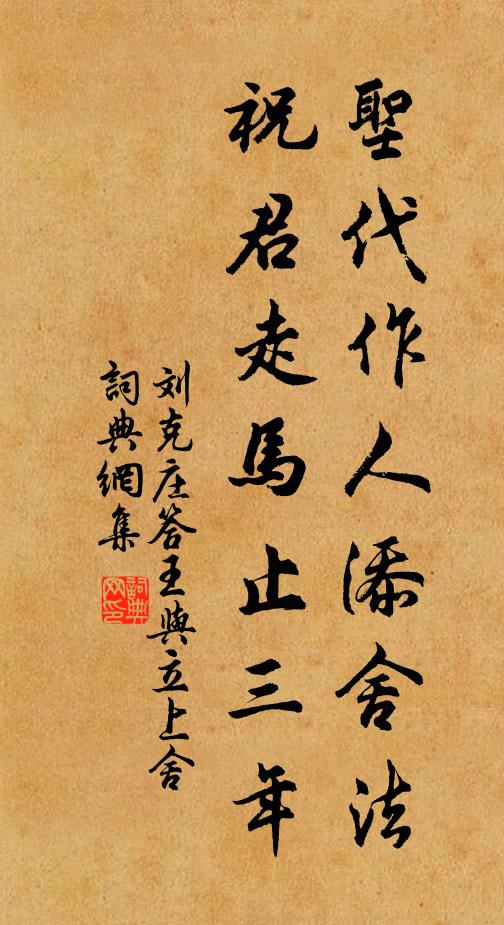 聖代作人添舍法
祝君走馬止三年
刘克庄答王與立上舍
詞典網集
詞典
网印